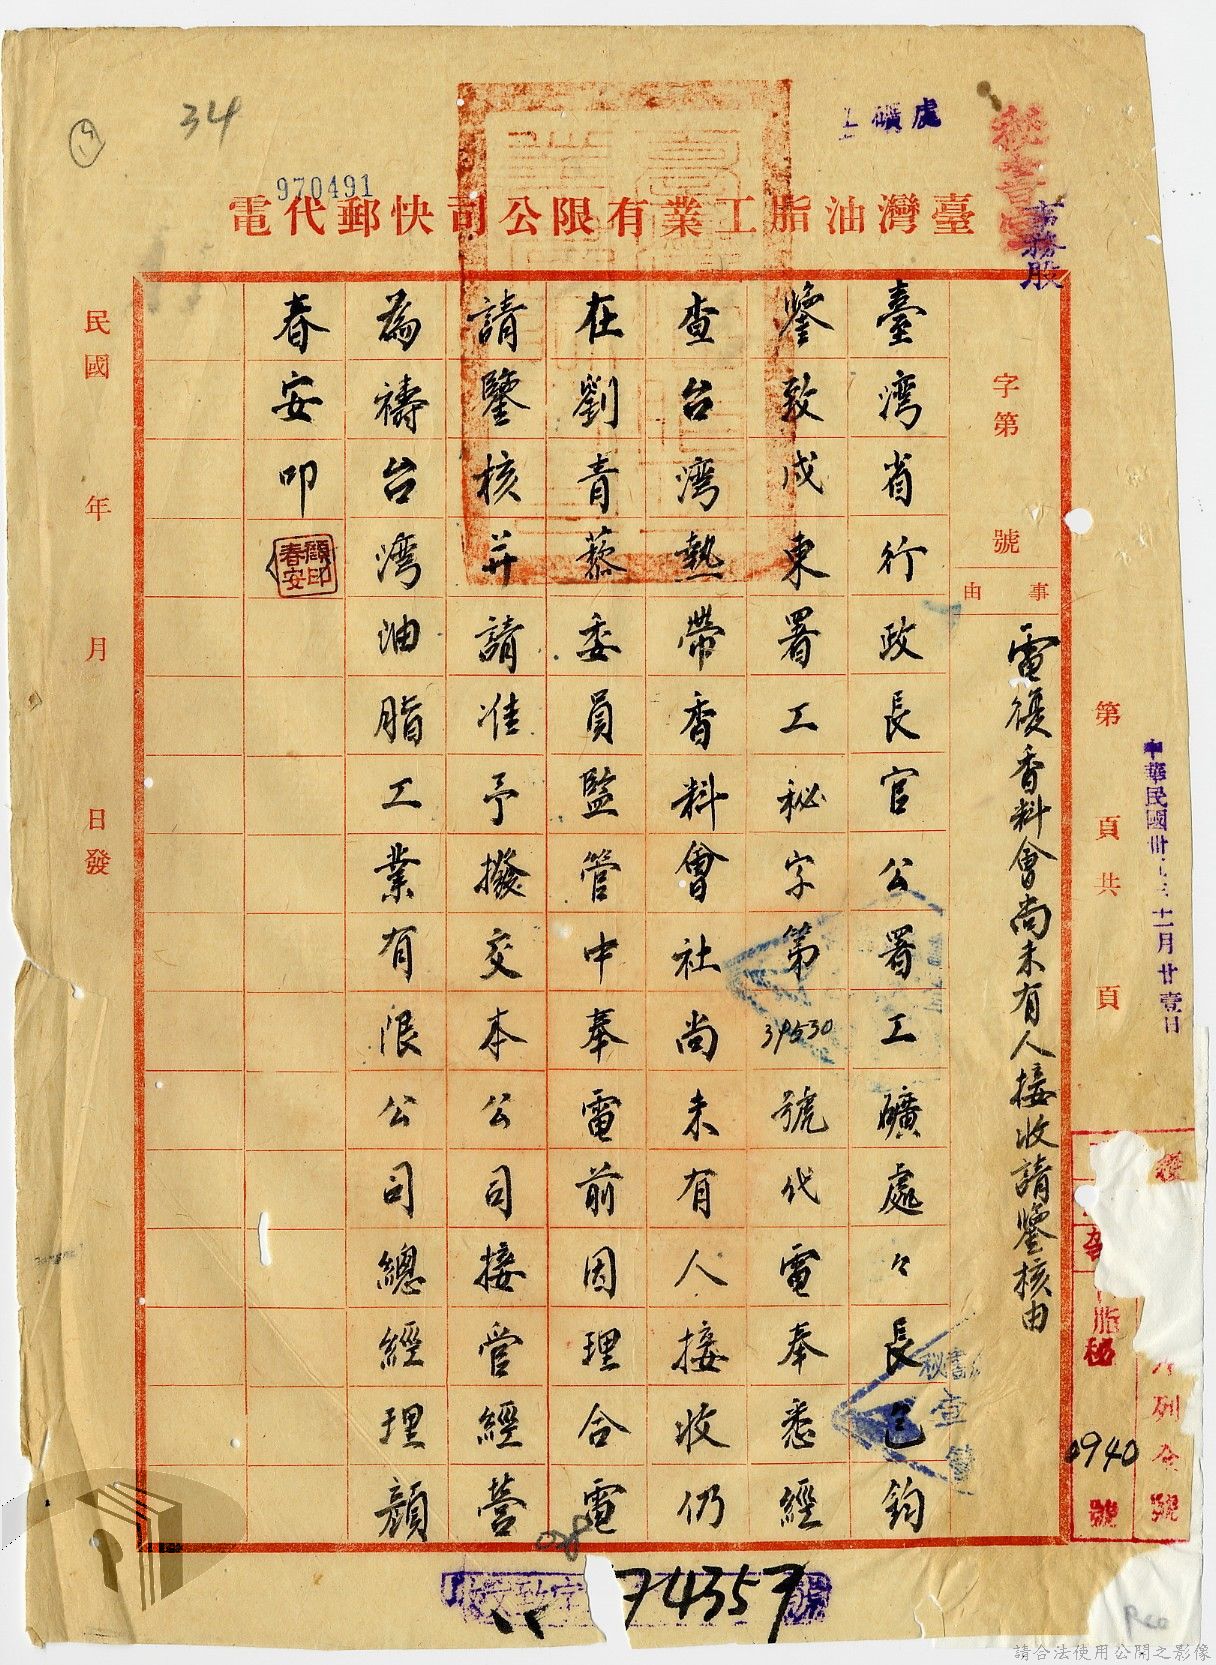 34
970491
礦處
秘書室
事務股
臺灣油脂工業有限公司快郵代電
中華民國卅
十一月廿壹日
第 頁共 頁
字第 號
事由
電復香料會尚未有人接收請鑒核由
臺湾省行政長官公署工礦處々長包鈞
鑒致戌東署工秘字第39530號代電奉悉經
查台湾熱帶香料會社尚未有人接收仍
在劉青藜委員監管中奉電前因理合電
請鑒核并請准予撥交本公司接管經營
為禱台湾油脂工業有限公司總經理顏
春安叩
顏印春安
民國 年 月 日發
脂秘
0940
號
74357
請合法使用公開之影像